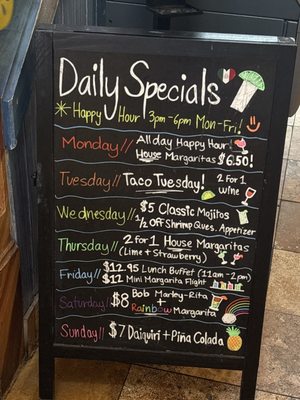 Daily Specials
Happy Hour 3pm-6pm Mon-Fri!
Monday// All day Happy Hour!
House Margaritas $6.50!
Tuesday// Taco Tuesday! 2 for 1
wine
Wednesday// $5 Classic Mojitos
1/2 Off Shrimp Ques. Appetizer
Thursday// 2 for 1 House Margaritas
(Lime + Strawberry)
Friday// $12.95 Lunch Buffet (11-2pm)
$12 Mini Margarita Flight
Saturday// $8 Bob Marley-Rita
+
Rainbow Margarita
Sunday// $7 Daiquiri + Piña Colada